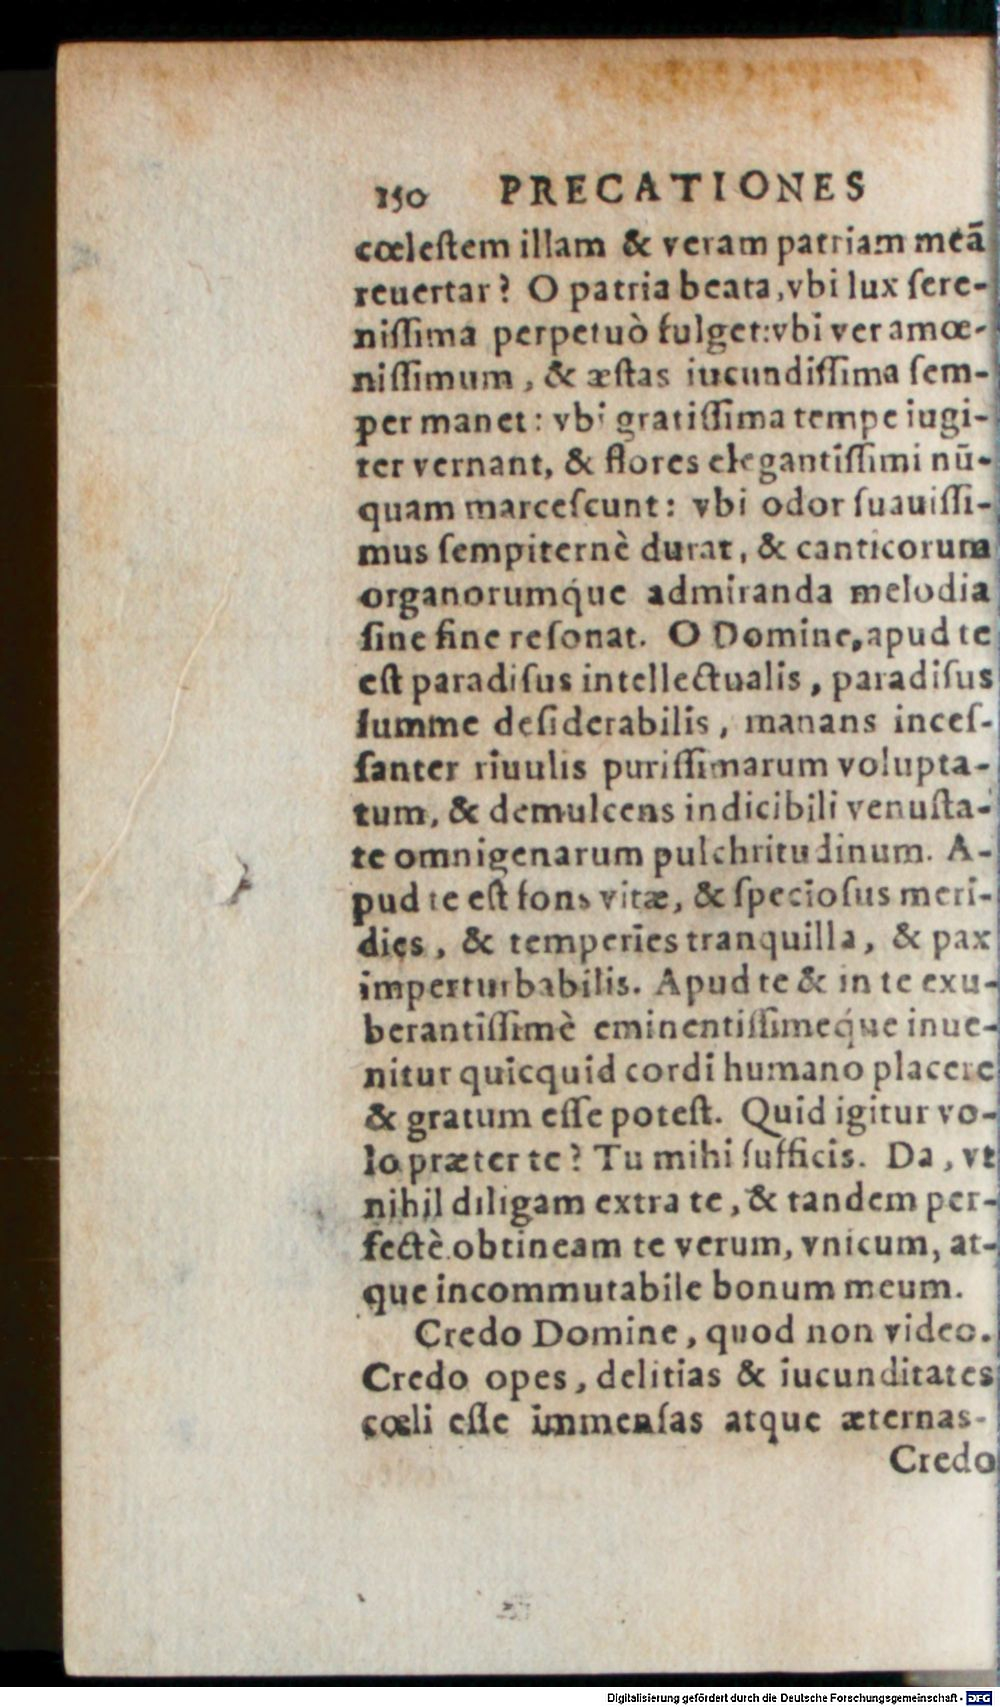 150 PRECATIONES
cœlestem illam & veram patriam meã
reuertar? O patria beata, vbi lux sere-
nissima perpetuò fulget: vbi ver amœ-
nissimum, & æstas iucundissima sem-
per manet: vbi gratissima tempe iugi-
ter vernant, & flores elegantissimi nū-
quam marcescunt: vbi odor suauissi-
mus sempiternè durat, & canticorum
organorumq́ue admiranda melodia
sine fine resonat. O Domine, apud te
est paradisus intellectualis, paradisus
summe desiderabilis, manans inces-
santer riuulis purissimarum volupta-
tum, & demulcens indicibili venusta-
te omnigenarum pulchritudinum. A-
pud te est fons vitæ, & speciosus meri-
dies, & temperies tranquilla, & pax
imperturbabilis. Apud te & in te exu-
berantissimè eminentissimeq́ue inue-
nitur quicquid cordi humano placere
& gratum esse potest. Quid igitur vo-
lo præter te? Tu mihi sufficis. Da, vt
nihil diligam extra te, & tandem per-
fectè obtineam te verum, vnicum, at-
que incommutabile bonum meum.
Credo Domine, quod non video.
Credo opes, delitias & iucunditates
cœli esse immensas atque æternas.
Credo
Digitalisierung gefördert durch die Deutsche Forschungsgemeinschaft - DFG